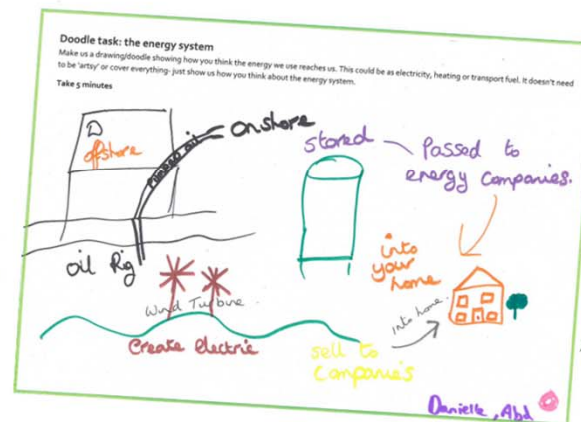 Doodle task: the energy system
Make us a drawing/doodle showing how you think the energy we use reaches us. This could be as electricity, heating or transport fuel. It doesn't need
to be 'artsy' or cover everything- just show us how you think about the energy system.
Take 5 minutes
D
offshore
onshore
stored
Passed to
energy companies.
oil Rig
Wind Turbine
into
your
home
into home.
Create electric
sell to
Companies
Danielle, Abd